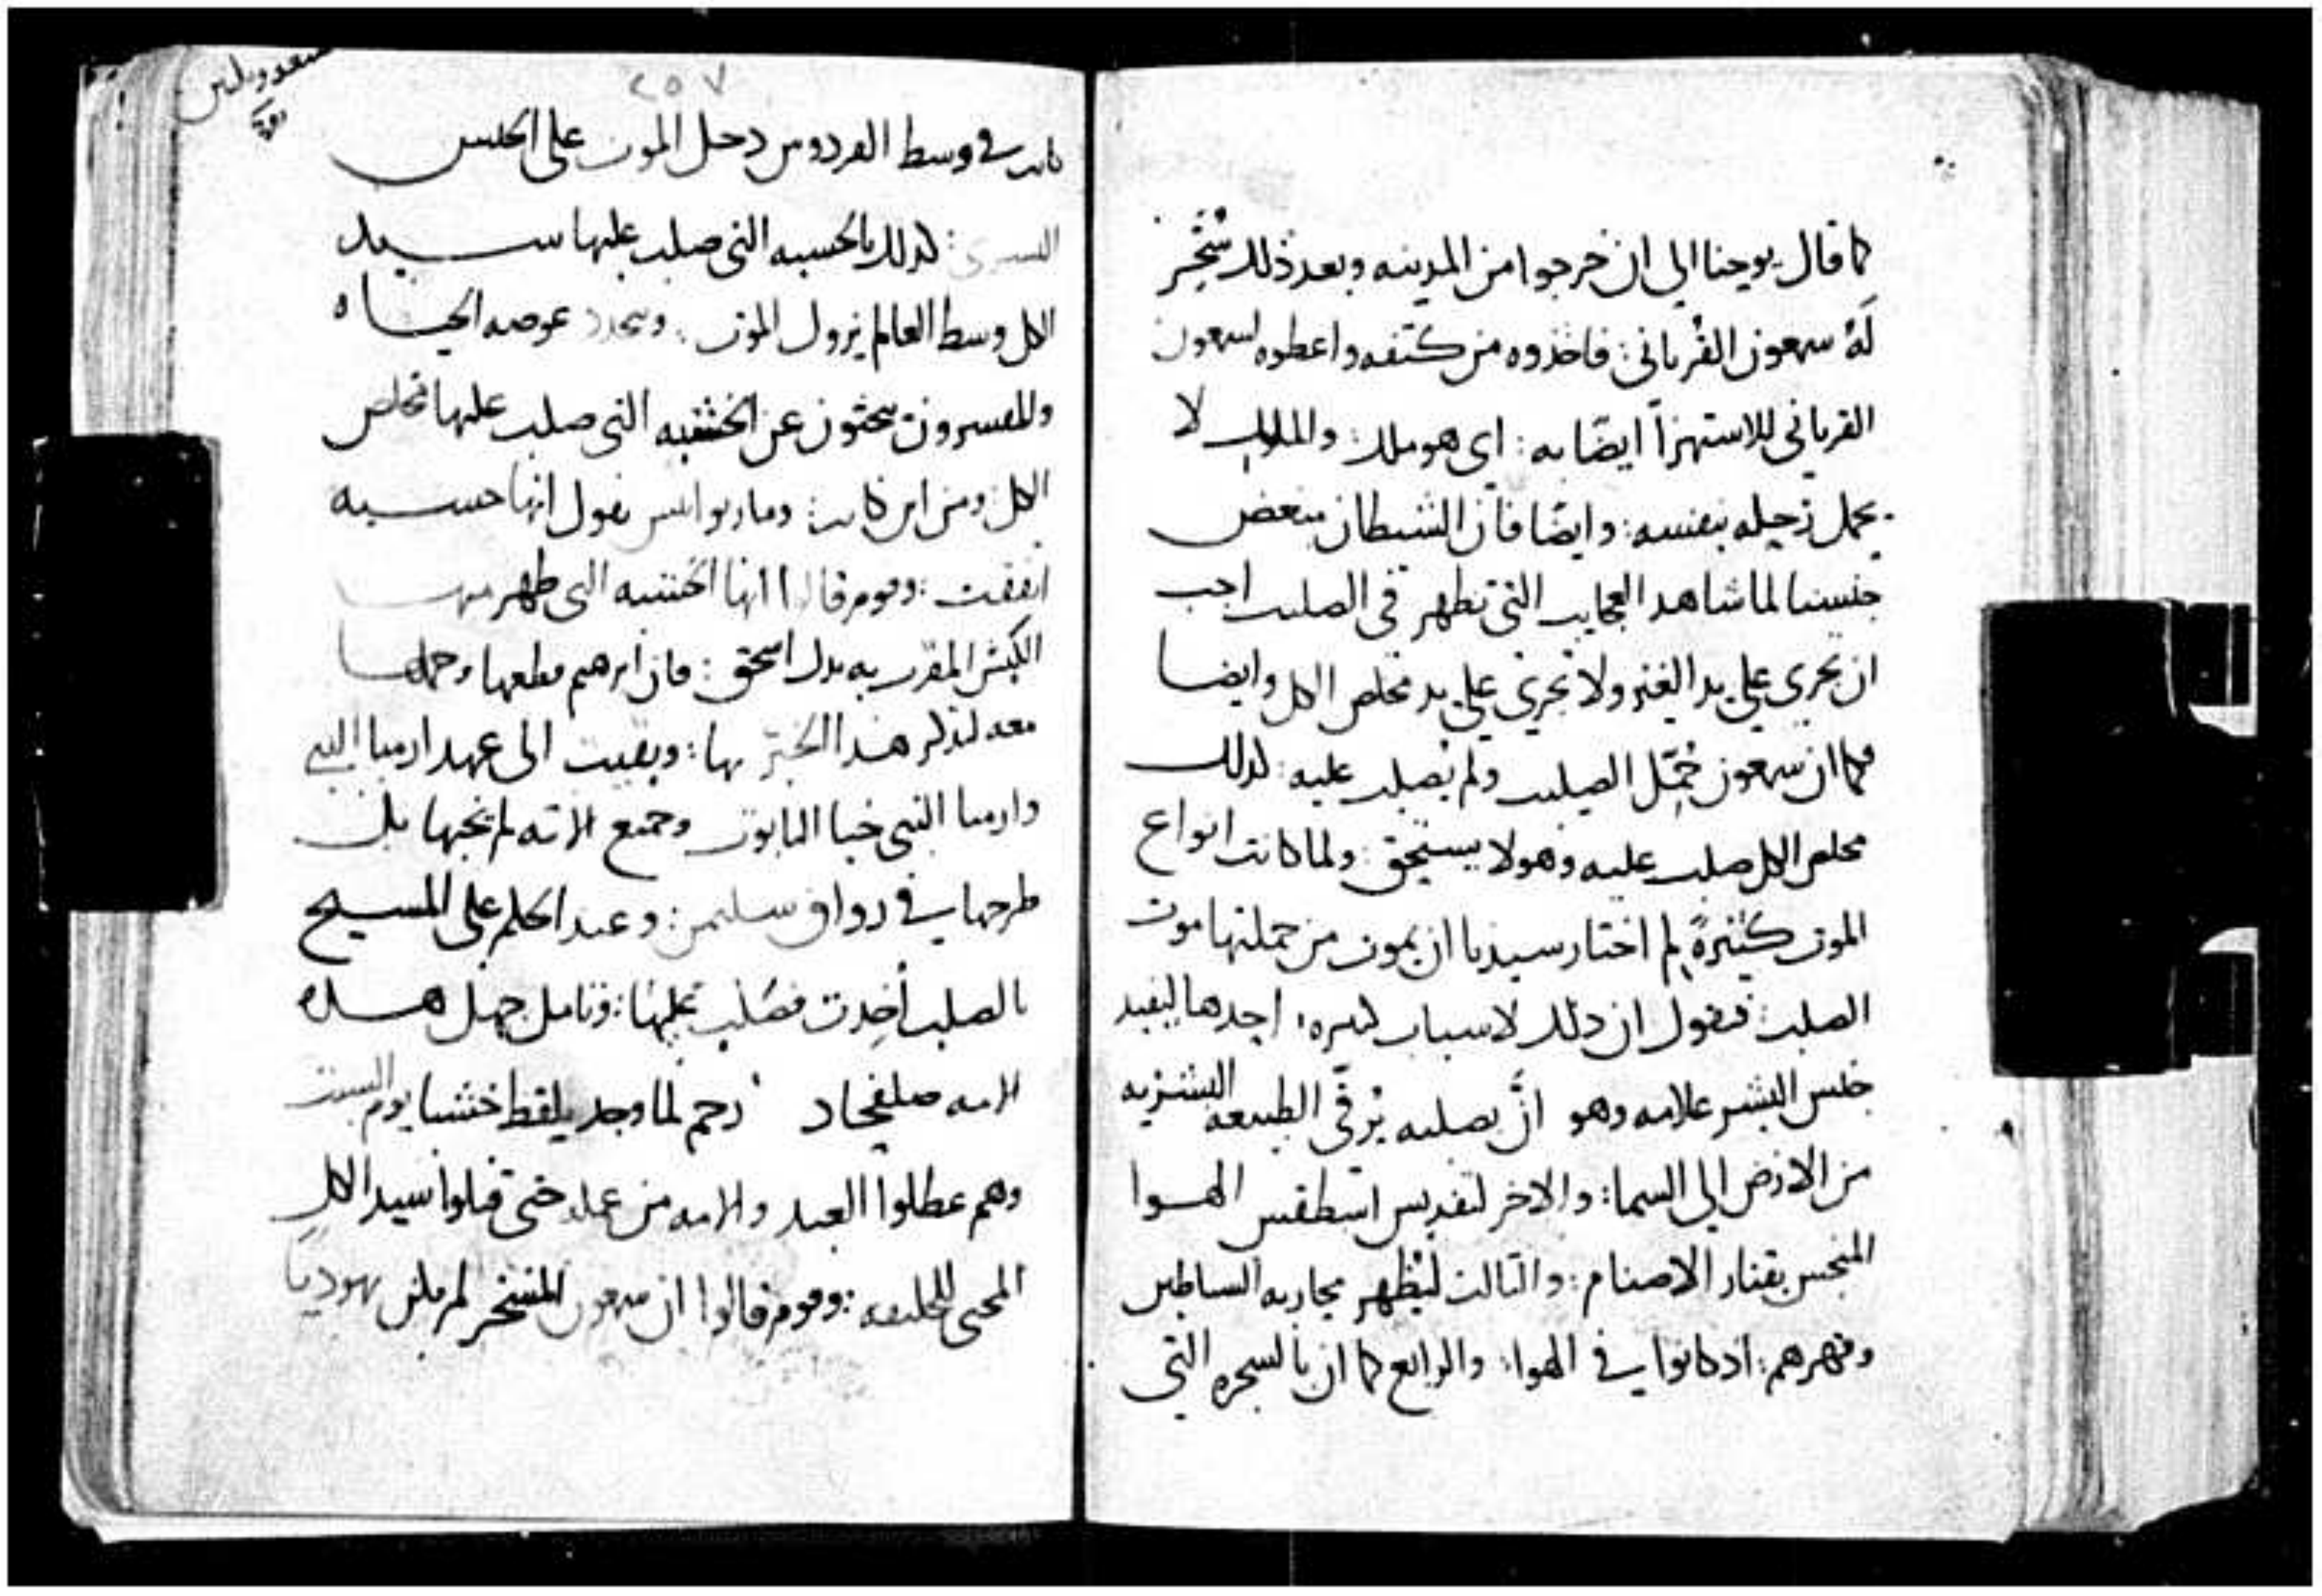 كما قال يوحنا الي ان خرجوا من المدينه وبعد ذلك سُخِّر
لَهُ سمعون القُرياني: فاخذوه من كتفه واعطوه لسمعون
القرياني للاستهزاً ايضًا به: اي هو ملك: والملك لا
يحمل زحيله بنفسه: وايضًا فان الشيطان ببغض
جنسنا لما شاهد العجايب التي تظهر في الصليب احب
ان تجري علي يد الغير ولا تجري علي يد مخلص الكل وايضا
فكما ان سمعون حُمِّل الصليب ولم يُصلب عليه: كذلك
مخلص الكل صلب عليه وهو لا يستحق: ولما كانت انواع
الموت كثيرةً لِم اختار سيدنا ان يموت من جملتها موت
الصلب: فنقول ان ذلك لاسباب كثيره: احدها ليفيد
جنس البشر علامه وهو انَّ بصلبه يُرقّي الطبيعه البشريه
من الارض الي السما: والاخر لتقديس اسطقس الهوا
المنجس بقتار الاصنام: والثالث ليُظهر محاربه الشياطين
وقهرهم: اذ كانوا في الهوا: والرابع كما ان بالشجره التي
٢٥٧
كانت في وسط الفردوس دخل الموت على الجنس
البشري: كذلك بالخشبه التي صلب عليها سيد
الكل وسط العالم يزول الموت: وتتجدد عوضه الحياه
والمفسرون يبحثون عن الخشبه التي صلب عليها مخلص
الكل ومن اين كانت: وماريوانيس يقول انها خشبه
اتفقت: وقوم قالوا انها الخشبه التي ظهر منها
الكبش المقرب به بدل اسحق: فان ابرهيم قطعها وحملها
معه لتذكر هذا الخبر بها: وبقيت الى عهد ارميا النبي
وارميا النبي خبا التابوت وجميع الاته لم يخبها بل
طرحها في رواق سليمن: وعند الحكم على المسيح
بالصلب أُخِذت فصُلب عليها: وتامل جهل هذه
الامه صلفحاد رجم لما وجد يلقط خشبا يوم السبت
وهم عطلوا العبد والامه من عمله حتى قتلوا سيد الكل
المحيى للخليقه: وقوم قالوا ان سمعون المسخر لم يكن يهوديا